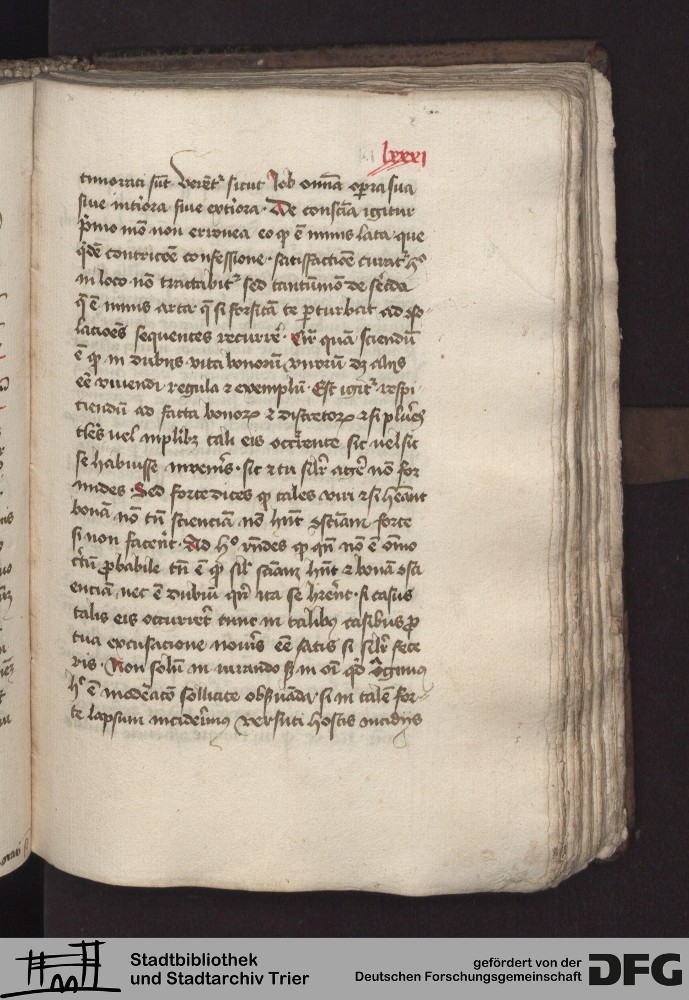 lxxxi
timorati sūt verēt᷒ sicut Job om̄ia opera sua
siue int̓iora siue ext̓iora. De consciā igitur
p̓mo mō non erronea eo qꝫ ē minus lata que
de contricōe confessione. satisfactiōe
in loco nō tractabit᷒ sed tantūmō de scd̄a
q̄ ē minus arta q̄ si forsitā te ꝑturbat ad ꝯso
lacioēs sequentes recurre. Cir̄ quā sciendū
ē qꝫ in dubijs vita bonorū virorū dꝫ alijs
eē viuendi regula ⁊ exemplū. Est igit᷒ respi
ciendū ad facta bonoꝝ ⁊ discretoꝝ ⁊ si plures
tales vel in plibꝫ tali eis occurrente sic vel sic
se habuisse inueneris. sic ⁊ tu silr̄ agere nō for
mides. Sed forte dices qꝫ tales viri ⁊ si hēant
bonā nō tn̄ scienciam nō hn̄t ꝯsciam forte
si non facerent. Ad hº rn̄des qꝫ qn̄ nō ē om̄o
ꝓbabile tn̄ ē qꝫ sil̓ sciam hn̄t ⁊ bonā ꝯsci
enciā, nec ē dubiū qn̄ ita se hr̄ent. si casus
talis eis occurreret tunc in talibꝫ casibus ꝓ
tua excusacione noueris eē satis si silr̄ fece
ris. Non solū in iurando sꝫ in oī qd̄
hº ē moderacō sollicite obseruāda. si in talē for
te lapsum inciderimus versuti hostis insidijs
Stadtbibliothek
und Stadtarchiv Trier
gefördert von der
Deutschen Forschungsgemeinschaft
DFG